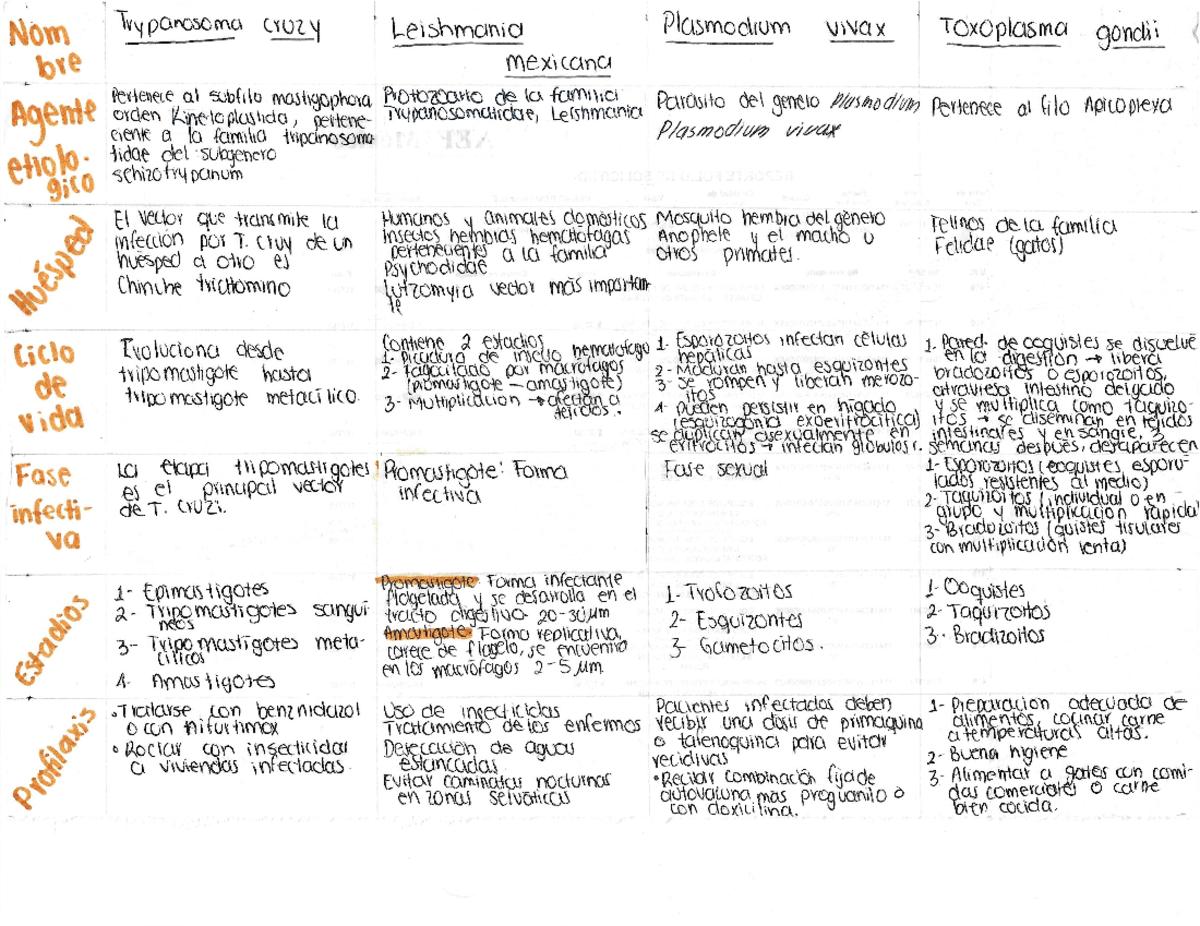 Nom
bre
Trypanosoma cruzy
Leishmania
mexicana
Plasmodium vivax
Toxoplasma gondii
Agente
etiolo-
gico
Pertenece al subfilo mastigophora
orden Kinetoplastida, pertene-
ciente a la familia tripanosoma
tidae del subgenero
schizotrypanum
Protozoario de la familia
Trypanosomatidae, Leishmania
Parásito del genero Plasmodium
Plasmodium vivax
Pertenece al filo Apicoplexa
Huésped
El vector que transmite la
infección por T. Cruy de un
huésped a otro es
Chinche trichomino
Humanos y animales domésticos
Insectos hembras hematófagas
pertenecientes a la familia
Psychodidae
Lutzomyia vector más importan
te
Mosquito hembra del género
Anophele y el macho u
otros primates.
Felinos de la familia
Felidae (gatos)
Ciclo
de
vida
Evoluciona desde
tripomastigote hasta
tripomastigote metacílico.
Contiene 2 estadios
1- Picadura de insecto hematofago
2- Fagocitado por macrófagos
(promastigote - amastigote)
3- Multiplicación → afectan a
tejidos.
1- Esporozoitos infectan células
hepáticas
2- Maduran hasta esquizontes
3- se rompen y liberan merozo-
itos
4- pueden persistir en hígado
(esquizogonia exoeritrocítica)
se duplican asexualmente en
eritrocitos → infectan glóbulos r.
1. Pared. de ooquistes se disuelve
en la digestión → libera
bradozoitos o esporozoitos,
atraviesa intestino delgado
y se multiplica como taquizo-
itos → se diseminan en tejidos
intestinales y en sangre, 3
semanas después, desaparecen
Fase
infecti-
va
La etapa tripomastigotes
es el principal vector
de T. cruzi.
Promastigote: Forma
infectiva
Fase sexual
1- Esporozoitos (ooquistes, esporu-
lados resistentes al medio)
2- Taquizoitos (individual o en
grupo y multiplicación rápida)
3- Bradozoitos (quistes tisulares
con multiplicación lenta)
Estadios
1- Epimastigotes
2- Tripomastigotes sanguí
neos
3- Tripomastigotes meta-
cílicos
4- Amastigotes
Promastigote- Forma infectante
flagelada y se desarolla en el
tracto digestivo 20-30μm
Amastigote- Forma replicativa,
carece de flagelo, se encuentra
en los macrófagos 2-5μm
1- Trofozoitos
2- Esquizontes
3- Gametocitos.
1- Ooquistes
2- Taquizoitos
3- Bradizoitos
Profilaxis
• Tratarse con benznidazol
o con nifurtimox
• Rociar con insecticidas
a viviendas infectadas.
Uso de insecticidas
Tratamiento de los enfermos
Desecación de aguas
estancadas
Evitar caminatas nocturnas
en zonas selváticas
Pacientes infectados deben
recibir una dosis de primaquina
o tafenoquina para evitar
recidivas
• Recibir combinación fija de
atovacuna mas proguanilo o
con doxicilina.
1- Preparación adecuada de
alimentos, cocinar carne
a temperaturas altas.
2- Buena higiene
3- Alimentar a gatos con comi-
das comerciales o carne
bien cocida.